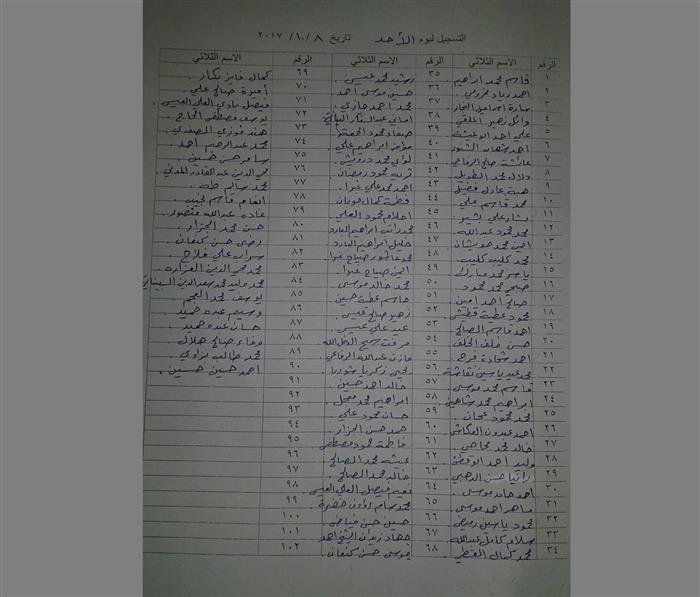 التسجيل ليوم الأحد تاريخ ٨/١٠/٢٠١٧
الرقم الاسم الثلاثي الرقم الاسم الثلاثي الرقم الاسم الثلاثي
١ قاسم محمد ابراهيم ٣٥ رشيد محمد عيسى ٦٩ كمال فايز بكار
٢ احمد زياد محزومي ٣٦ حسين موسى احمد ٧٠ اميرة صالح علي
٣ سارة اسماعيل النجار ٣٧ محمد احمد حازي ٧١ فيصل بادي العلي العيسى
٤ وائل زهير ٣٨ اماني عبد الستار ٧٢ يوسف مصطفى الحاج
٥ علي احمد ابو عيشة ٣٩ صفاء محمود ٧٣ هند فوزي الصفدي
٦ احمد شهاب ٤٠ مؤمن ابراهيم علي ٧٤ محمد عبد الرحيم احمد
٧ عائشة صالح الرفاعي ٤١ لؤي محمد درويش ٧٥ سامر حسن حسين
٨ دلال محمد الطويل ٤٢ ثريه محمود رمضان ٧٦ محي الدين عبد القادر المدني
٩ هبة عادل فضيل ٤٣ احمد محمد علي ٧٧ محمد سالم طه
١٠ محمد قاسم علي ٤٤ فطمة كمال حوران ٧٨ انعام قاسم نجيب
١١ بشار علي بشير ٤٥ احلام محمود العلي ٧٩ غاده عبدالله منصور
١٢ محمد محمود عبدالله ٤٦ محمد رأفت ابراهيم البارد ٨٠ حسن محمد الجزار
١٣ ايمن محمد حوريشان ٤٧ خليل ابراهيم البارد ٨١ رضى حسن كنعان
١٤ محمد كليب كليب ٤٨ محمد عاشور صياح ٨٢ سراب علي فلاح
١٥ ياسر محمد مبارك ٤٩ ايمن صياح ٨٣ محمد محي الدين الغزاوي
١٦ صبحي محمد محمود ٥٠ محمد خالد موسى ٨٤ محمد وليد محمد سعد الدين
١٧ صالح احمد امين ٥١ جاسم عطية حسين ٨٥ يوسف محمد النجم
١٨ محمود عطية ٥٢ زهير صالح عيسى ٨٦ وسيم عبده حميد
١٩ احمد قاسم الصالح ٥٣ عبد علي عيسى ٨٧ حسان عبده حميد
٢٠ حسن خلف الخلف ٥٤ مرفت سميح ٨٨ وفاء صالح هلال
٢١ احمد شحادة فرج ٥٥ مازن عبدالله الرفاعي ٨٩ محمد طالب بزاوي
٢٢ محمد عيد ياسين ٥٦ يحيى زكريا شوربا ٩٠ احمد حسين حسين
٢٣ قاسم محمد موسى ٥٧ خالد احمد حسين ٩١
٢٤ ابراهيم محمد شاهين ٥٨ ابراهيم محمد معجل ٩٢
٢٥ محمد محمود عجان ٥٩ حسان محمود علي ٩٣
٢٦ احمد عبدون العكاش ٦٠ حمد حسن الجزار ٩٤
٢٧ خالد محمد محاجي ٦١ فاطمة محمود مصطفى ٩٥
٢٨ وليد احمد ٦٢ عيشه محمد الصالح ٩٦
٢٩ رانيا حسن الذهبي ٦٣ خالد محمد الصالح ٩٧
٣٠ احمد خالد موسى ٦٤ نعيم فيصل العلي العيسى ٩٨
٣١ ماهر احمد موسى ٦٥ محمد سام لؤؤي خضرة ٩٩
٣٢ محمود ياسين رميض ٦٦ حسين حسن فياض ١٠٠
٣٣ سلام كامل عبدالله ٦٧ جهاد زيدان الشيخ احمد ١٠١
٣٤ محمد كمال القطي ٦٨ موسى حسن كنعان ١٠٢